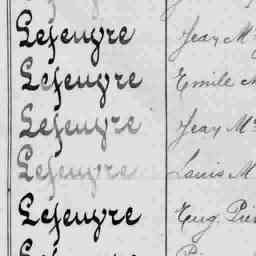 Lefeuvre Jean M
Lefeuvre Emile
Lefeuvre Jean M
Lefeuvre Louis M
Lefeuvre Eug. Pie